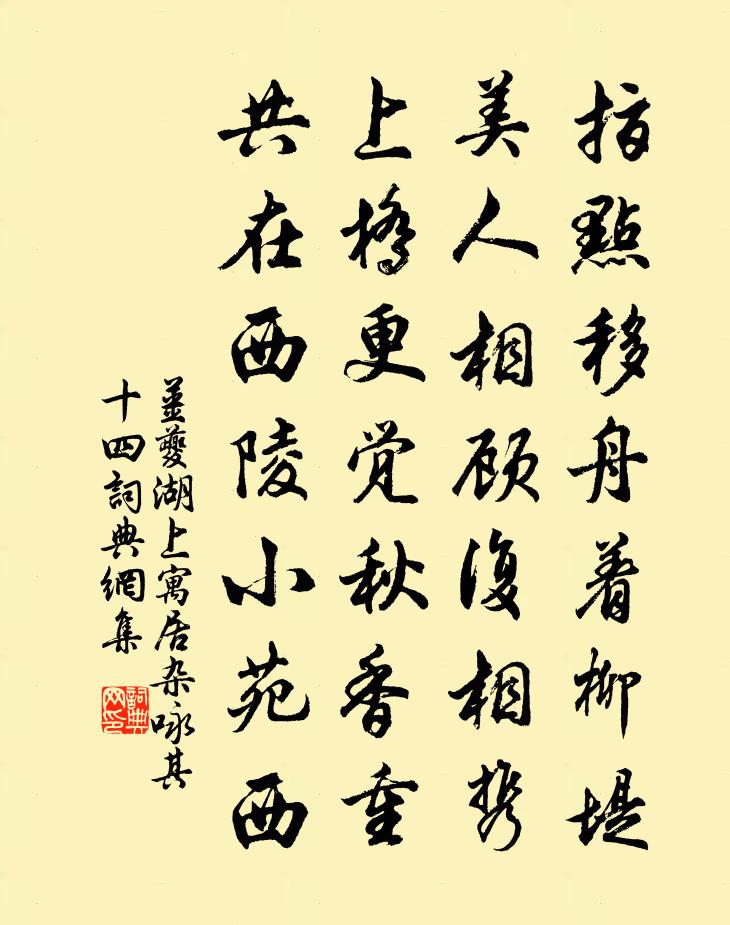 指點移舟着柳堤
美人相顾復相携
上橋更覺秋香重
共在西陵小苑西
姜夔湖上寓居杂咏其
十四詞典網集
詞典
网印